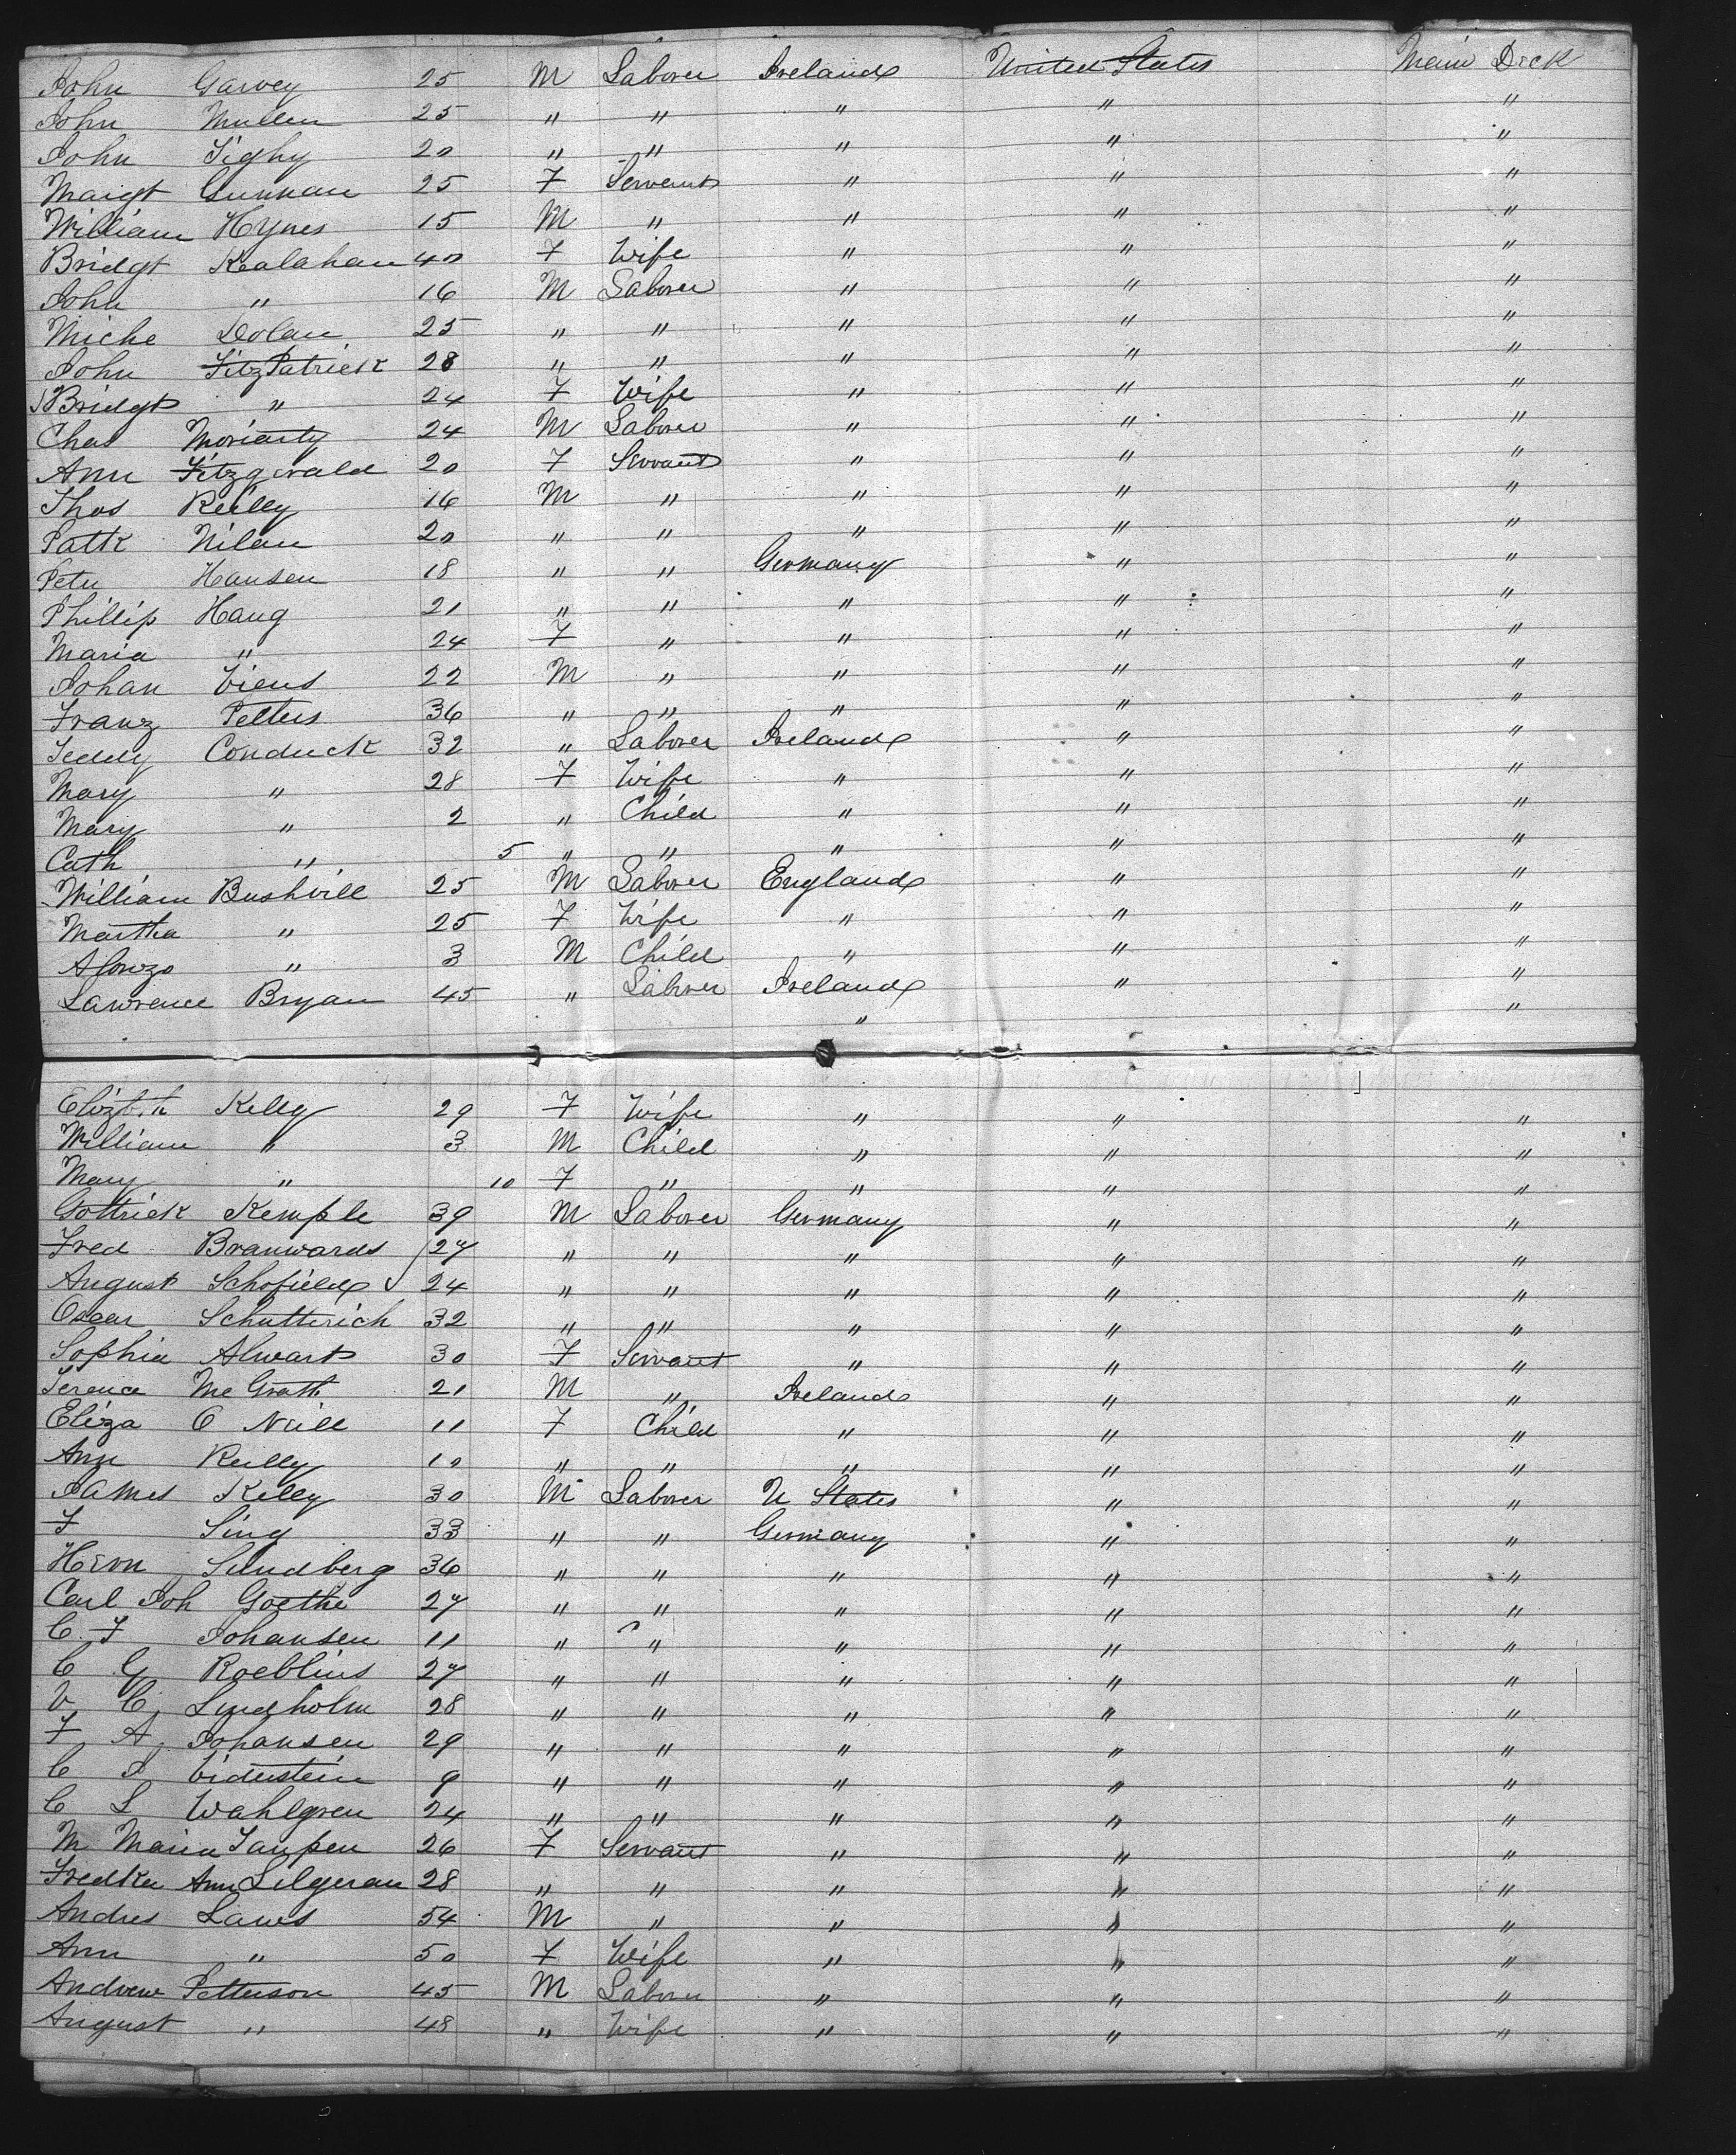 John Garvey 25 M Laborer Ireland United States Main Deck
John Mullen 25 " " " " "
John Tighy 20 " " " " "
Margt Gunnan 25 F Servant " " "
William Hynes 15 M " " " "
Bridgt Kealahan 40 F Wife " " "
John " 16 M Laborer " " "
Miche Dolan 25 " " " " "
John FitzPatrick 28 " " " " "
Bridgt " 24 F Wife " " "
Chas Moriarty 24 M Laborer " " "
Ann Fitzgerald 20 F Servant " " "
Thos Reilly 16 M " " " "
Patk Nilan 20 " " " " "
Peter Hansen 18 " " Germany " "
Phillip Haug 21 " " " " "
Maria " 24 F " " " "
Johan Viens 22 M " " " "
Franz Pelters 36 " " " " "
Teddy Conduck 32 " Laborer Ireland " "
Mary " 28 F Wife " " "
Mary " 2 " Child " " "
Cath " 5 " " " " "
William Bushvill 25 M Laborer England " "
Martha " 25 F Wife " " "
Alonzo " 3 M Child " " "
Lawrence Bryan 45 " Laborer Ireland " "
" "
Elizbth Kelly 29 F Wife " " "
William " 3 M Child " " "
Mary " 10 F " " " "
Gottrick Kemple 39 M Laborer Germany " "
Fred Branwards 27 " " " " "
August Schofield 24 " " " " "
Oscar Schutterich 32 " " " " "
Sophia Alwart 30 F Servant " " "
Terence McGrath 21 M " Ireland " "
Eliza O Neill 11 F Child " " "
Ann Reilly 10 " " " " "
James Kelly 30 M Laborer U States " "
F Sing 33 " " Germany " "
Herm Lindberg 36 " " " " "
Carl Joh Goethe 27 " " " " "
C. F Johansen 11 " " " " "
C G Roeblins 27 " " " " "
V C. Lindholm 28 " " " " "
F A. Johansen 29 " " " " "
C J Viderstein 9 " " " " "
C L Wahlgren 24 " " " " "
M Maria Taupen 26 F Servant " " "
Fredka Ann Lilgeran 28 " " " " "
Andres Laws 54 M " " " "
Ann " 50 F Wife " " "
Andrew Petterson 45 M Laborer " " "
August " 48 " Wife " " "